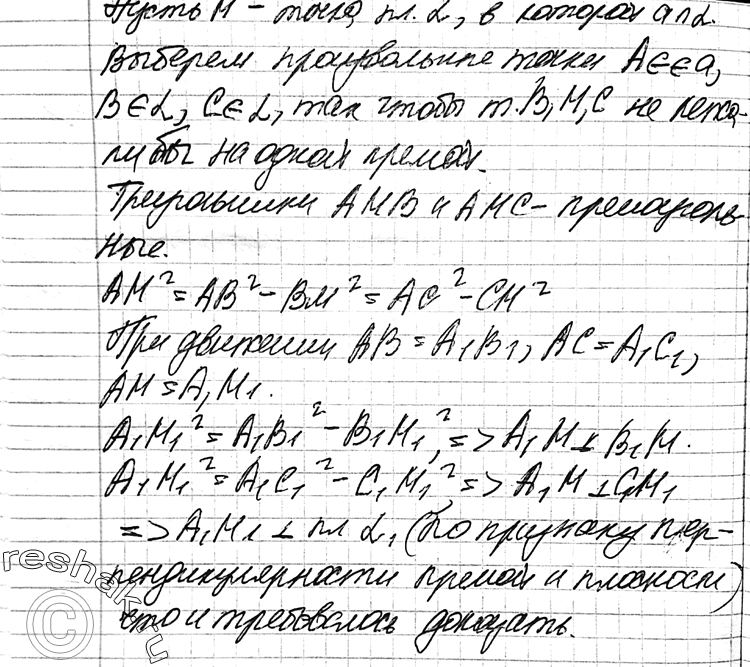 Пусть М – точка пл. α, в которой a∩α.
Выберем произвольные точки А∈∈a,
В∈α, С∈α, так чтобы т. В, М, С не лежа-
ли бы на одной прямой.
Треугольники АМВ и АМС – прямоуголь-
ные.
АМ² = АВ² – ВМ² = АС² – СМ²
При движении АВ = А₁В₁, АС = А₁С₁,
АМ = А₁М₁.
А₁М₁² = А₁В₁² – В₁М₁², => А₁М ⊥ В₁М.
А₁М₁² = А₁С₁² – С₁М₁² => А₁М ⊥ С₁М₁
=> А₁М₁ ⊥ пл α₁ (по признаку пер-
пендикулярности прямой и плоскости)
что и требовалось доказать.
reshak.ru
©